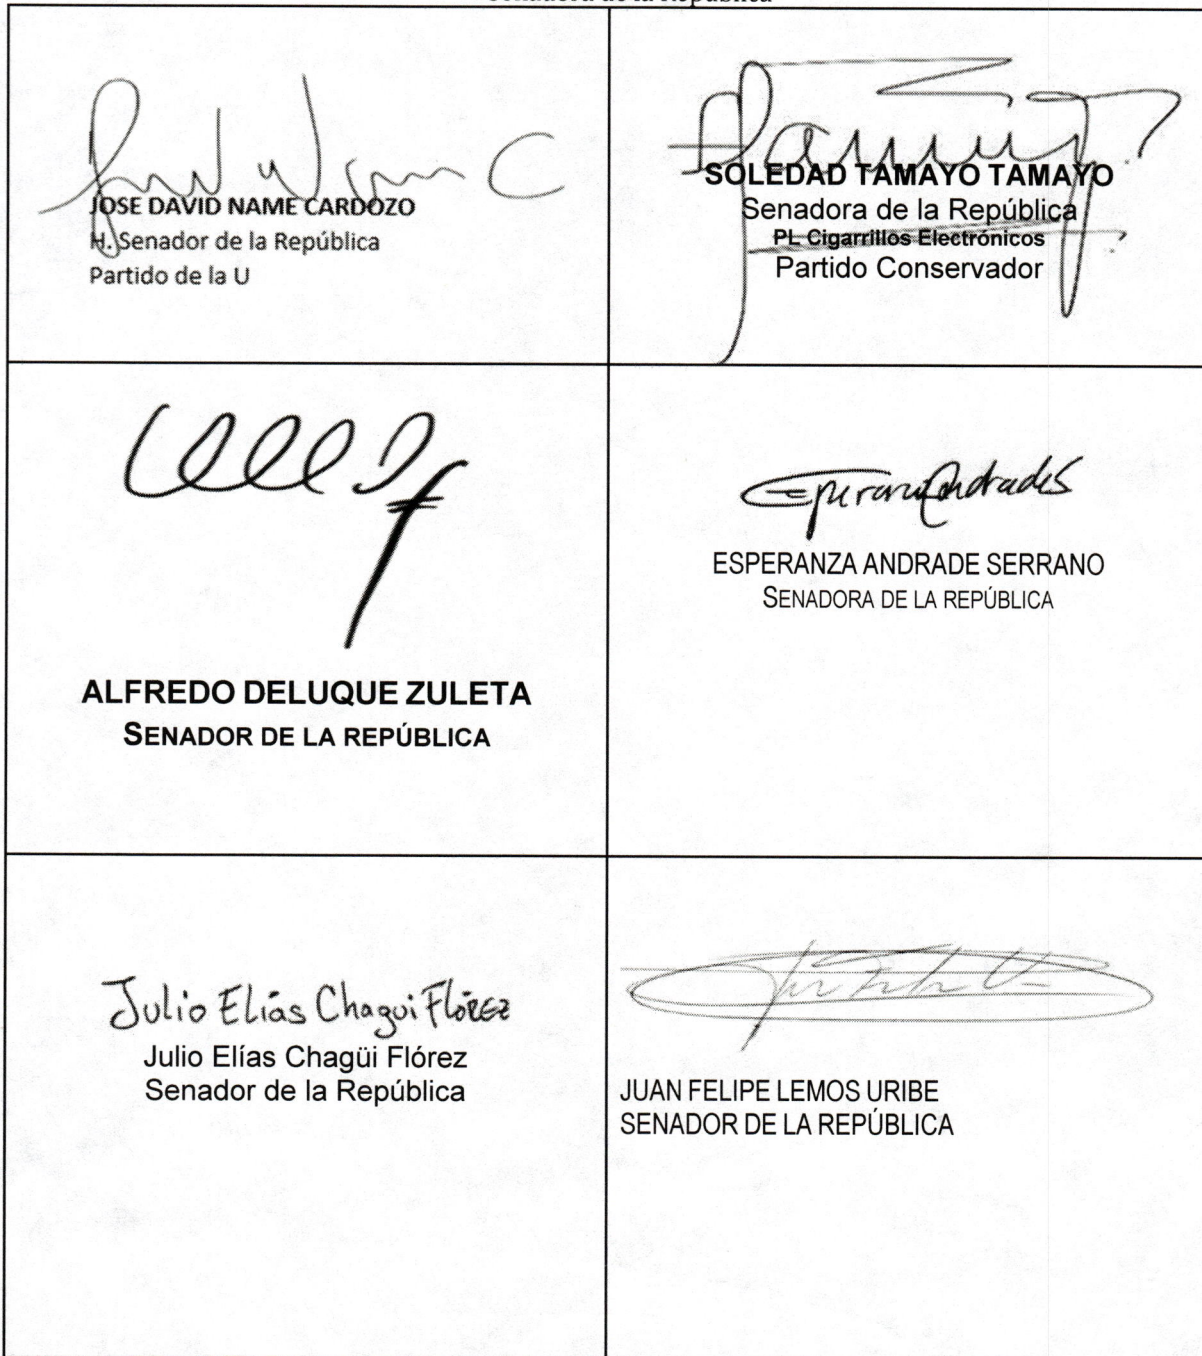 Senadora de la República
JOSE DAVID NAME CARDOZO
H. Senador de la República
Partido de la U
SOLEDAD TAMAYO TAMAYO
Senadora de la República
PL Cigarrillos Electrónicos
Partido Conservador
ALFREDO DELUQUE ZULETA
SENADOR DE LA REPÚBLICA
Esperanza Andrade S
ESPERANZA ANDRADE SERRANO
SENADORA DE LA REPÚBLICA
Julio Elías Chagui Flórez
Julio Elías Chagüi Flórez
Senador de la República
JUAN FELIPE LEMOS URIBE
SENADOR DE LA REPÚBLICA